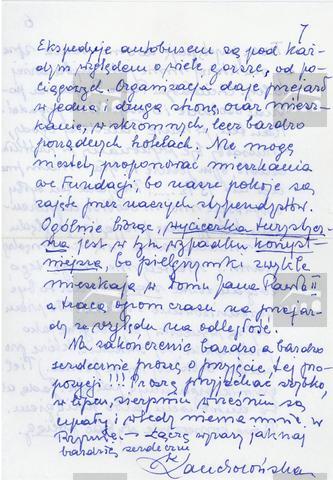 7
Ekspedycje autobusem są pod każ-
dym względem o wiele gorsze, od po-
ciągowych. Organizacja daje przejazd
w jedną i drugą stronę, oraz miesz-
kanie, w skromnych, lecz bardzo
porządnych hotelach. Nie mogę
niestety proponować mieszkania
we Fundacji, bo nasze pokoje są
zajęte przez naszych stypendystów.
Ogólnie biorąc, wycieczka turystycz-
na jest w tym wypadku korzyst-
niejsza, bo pielgrzymki zwykle
mieszkają w Domu Jana Pawła II
a tracą ogrom czasu na przejaz-
dy ze względu na odległość.
Na zakończenie bardzo a bardzo
serdecznie proszę o przyjęcie tej pro-
pozycji!!! Proszę przyjechać szybko,
w lipcu, sierpniu wrześniu są
upały i wtedy nie ma mnie w
Rzymie. — Łączę wyrazy jak naj
bardziej serdeczne
Lanckorońska